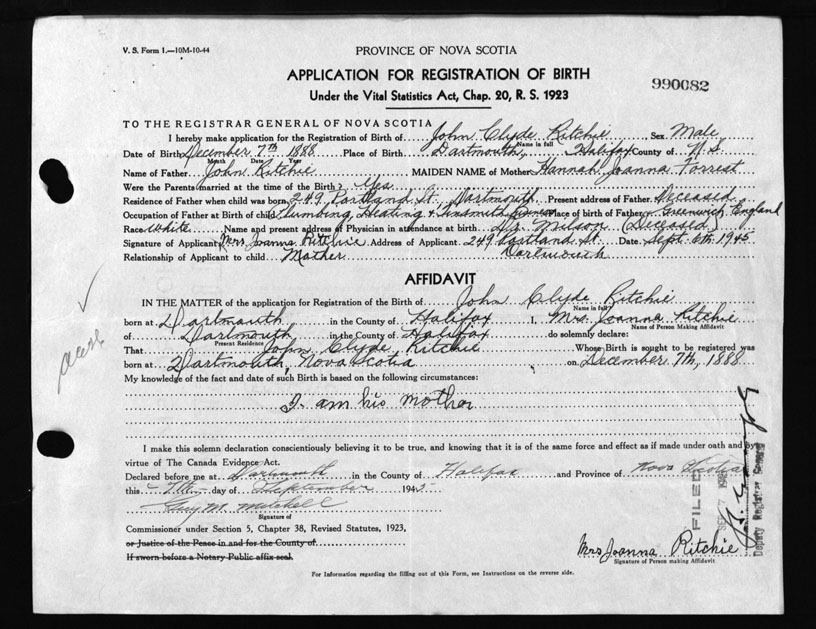 V. S. Form 1.—10M-10-44
PROVINCE OF NOVA SCOTIA
APPLICATION FOR REGISTRATION OF BIRTH
990082
Under the Vital Statistics Act, Chap. 20, R. S. 1923
TO THE REGISTRAR GENERAL OF NOVA SCOTIA
I hereby make application for the Registration of Birth of John Clyde Ritchie Sex Male
Name in full
Date of Birth December 7th 1888 Place of Birth Dartmouth, Halifax County of N.S.
Month Date Year
Name of Father John Ritchie MAIDEN NAME of Mother Hannah Joanna Forrest
Were the Parents married at the time of the Birth? Yes
Residence of Father when child was born 249 Portland St. Dartmouth Present address of Father Deceased
Occupation of Father at Birth of child Plumbing, Heating & Tinsmith Business Place of birth of Father Greenwich, England
Race White Name and present address of Physician in attendance at birth Dr. Milson (Deceased)
Signature of Applicant Mrs Joanna Ritchie Address of Applicant 249 Portland St. Date Sept. 6th 1945
Relationship of Applicant to child Mother Dartmouth
AFFIDAVIT
IN THE MATTER of the application for Registration of the Birth of John Clyde Ritchie
Name in full
born at Dartmouth in the County of Halifax I, Mrs. Joanna Ritchie
Name of Person Making Affidavit
of Dartmouth in the County of Halifax do solemnly declare:
Present Residence
That John Clyde Ritchie Whose Birth is sought to be registered was
born at Dartmouth, Nova Scotia on December 7th, 1888
My knowledge of the fact and date of such Birth is based on the following circumstances:
I am his mother
I make this solemn declaration conscientiously believing it to be true, and knowing that it is of the same force and effect as if made under oath and by
virtue of The Canada Evidence Act.
Declared before me at Dartmouth in the County of Halifax and Province of Nova Scotia
this 7th day of September 1945
Guy M. Mitchell
Signature of
Commissioner under Section 5, Chapter 38, Revised Statutes, 1923,
or Justice of the Peace in and for the County of
If sworn before a Notary Public affix seal.
Mrs Joanna Ritchie
Signature of Person making Affidavit
For Information regarding the filling out of this Form, see Instructions on the reverse side.
FILED
Deputy Registrar General